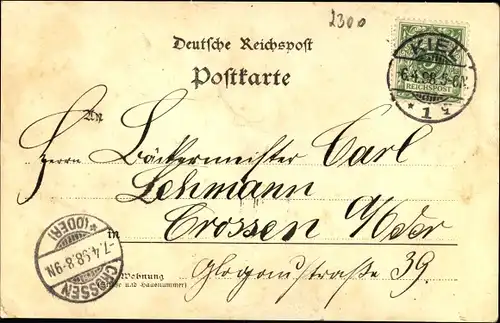 2300
Deutsche Reichspost
Postkarte
KIEL
6.4.98.5-6N.
* 1 q
REICHSPOST
An
Herrn Bäckermeister Carl
Lehmann
in Crossen a/Oder
Wohnung Glogaustraße 39.
(Straße und Hausnummer)
CROSSEN
-7.4.98.8-9N
*(ODER)